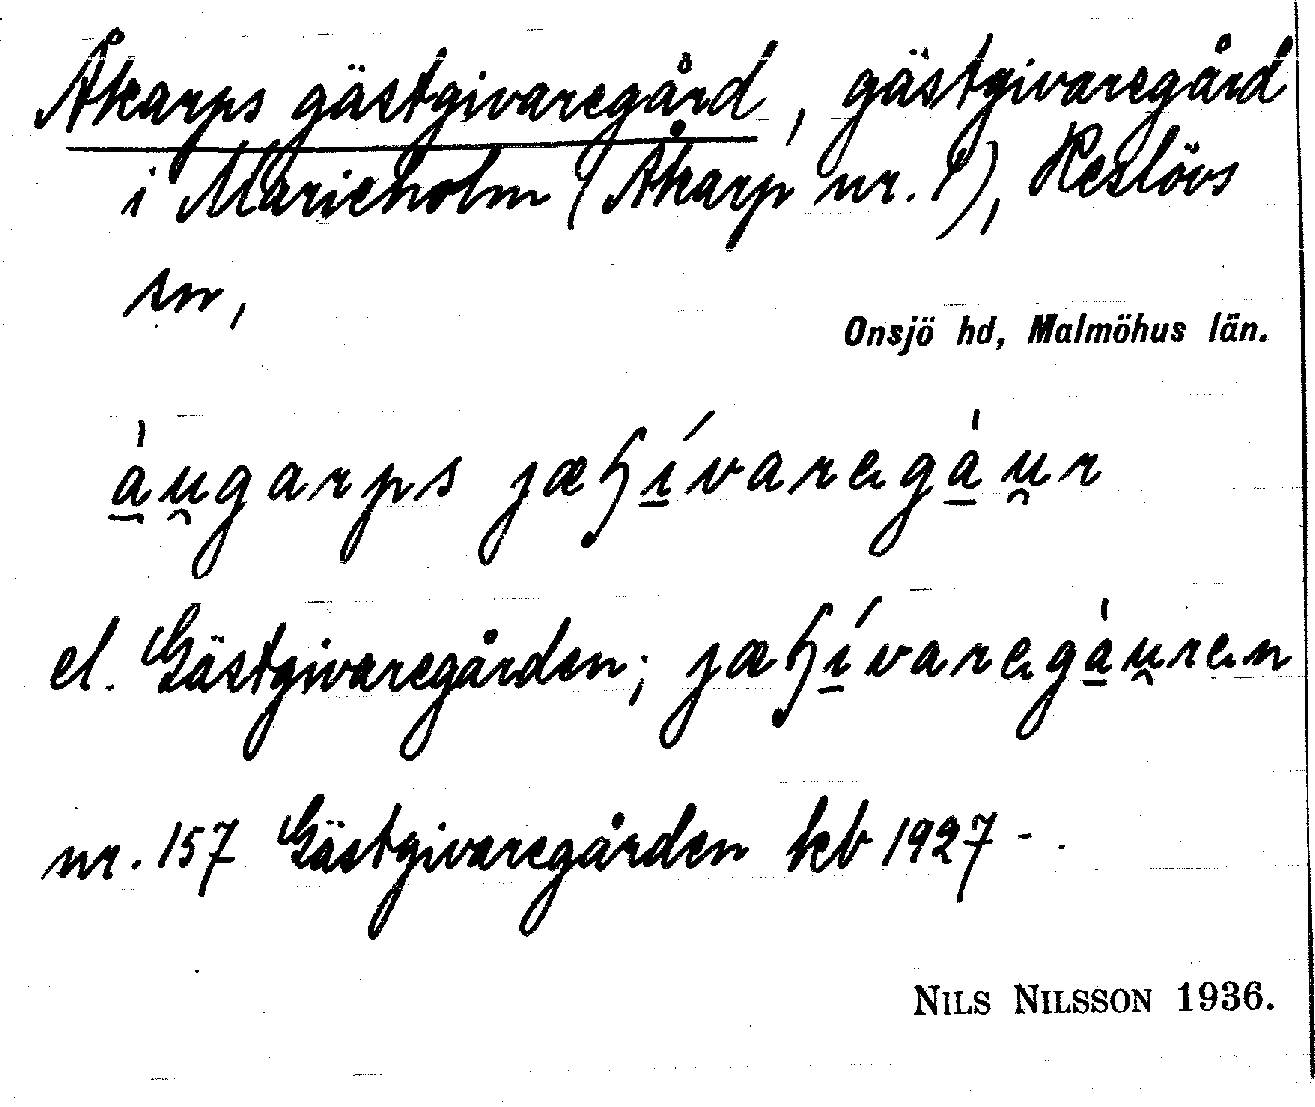 Åkarps gästgivaregård, gästgivaregård
i Marieholm (Åkarp nr. 1), Reslövs
sn,
Onsjö hd, Malmöhus län.
àu̯garps jæʂívaregàu̯r
el. Gästgivaregården; jæʂívaregàu̯ren
nr. 157 Gästgivaregården kb 1927 -
NILS NILSSON 1936.